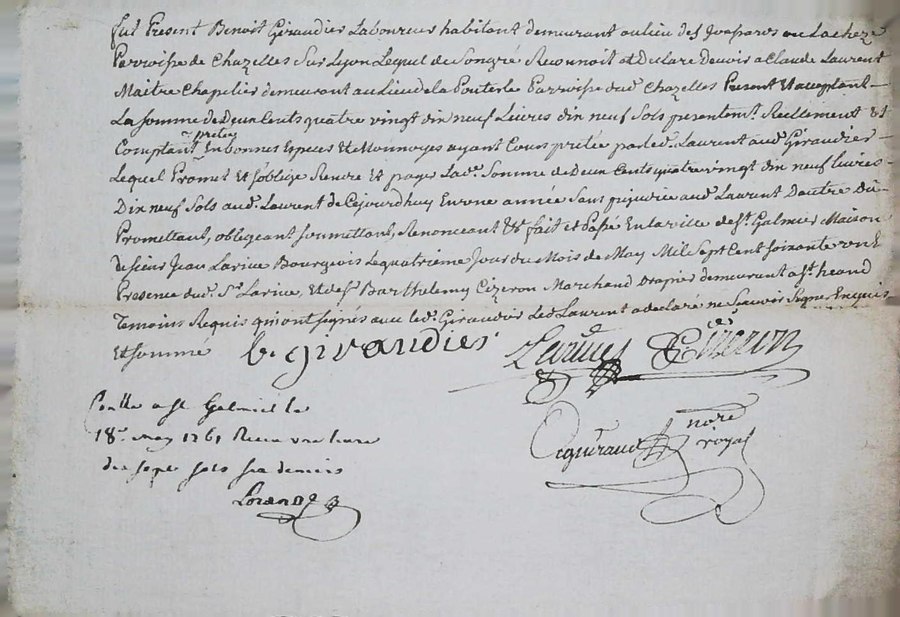 fut Present Benoit Giraudier Laboureur habitant demeurant au lieu des ou Lacheze
Parroisse de Chazelles Sur Lyon Lequel de Songré Reconnoit et declare devoir a Claude Laurent
Maitre Chapelier demeurant au Lieu de la Parroisse dud. Chazelles Present et acceptant
La somme de deux Cents quatre vingt dix neuf Livres dix neuf Sols Reellement &
Comptant pretée En bonnes Especes Et Monnoyes ayant Cours pretée par led. Laurent aud. Giraudier
Lequel Promet Et s'oblige Rendre Et payer Lad. Somme de Deux Cents quatre vingt dix neuf livres
Dix neuf Sols aud. Laurent de Cejourdhuy En une année Sans prejudice aud. Laurent dautre dû
Promettant, obligeant soumettant, Renonceant &c fait et Passé En la ville de St. Galmier Maison
de sieur Jean Larive Bourgeois Le quatrieme Jour du Mois de May Mil Sept Cent soixante un En
Presence dud. Sr. Larive, Et de Sr. Barthelemy Cizeron Marchand Drapier demeurant a St. heand
Temoins Requis qui ont signés avec led. Giraudier Led. Laurent a declaré ne Scavoir Signer Enquis
Et sommé b. giraudier Larive Cizeron
a St Galmier le
18e. may 1761 Receu une livre
dix sept sols six deniers
nore
royal